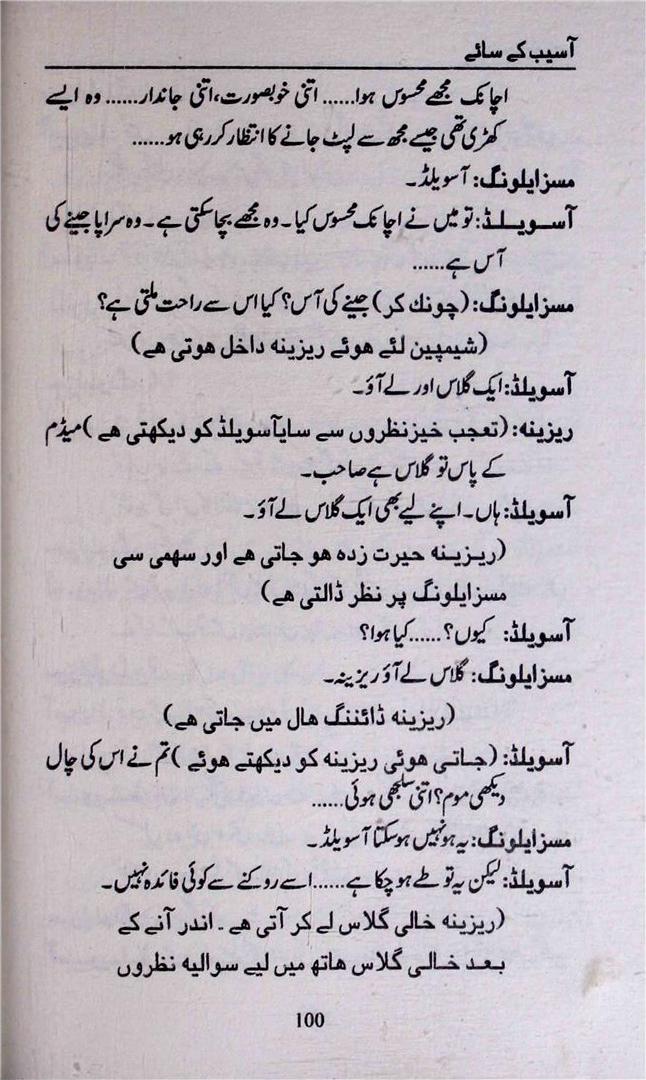 آسیب کے سائے
اچانک مجھے محسوس ہوا...... اتنی خوبصورت، اتنی جاندار...... وہ ایسے
کھڑی تھی جیسے مجھ سے لپٹ جانے کا انتظار کر رہی ہو......
مسز ایلونگ: آسویلڈ۔
آسویلڈ: تو میں نے اچانک محسوس کیا۔ وہ مجھے بچا سکتی ہے۔ وہ سراپا جینے کی
آس ہے......
مسز ایلونگ: (چونك كر) جینے کی آس؟ کیا اس سے راحت ملتی ہے؟
(شیمپین لئے ھوئے ریزینہ داخل ھوتی ھے)
آسویلڈ: ایک گلاس اور لے آؤ۔
ریزینہ: (تعجب خیز نظروں سے سایآسویلڈ کو دیکھتی ھے) میڈم
کے پاس تو گلاس ہے صاحب۔
آسویلڈ: ہاں۔ اپنے لیے بھی ایک گلاس لے آؤ۔
(ریزینہ حیرت زدہ ھو جاتی ھے اور سھمی سی
مسز ایلونگ پر نظر ڈالتی ھے)
آسویلڈ: کیوں؟...... کیا ہوا؟
مسز ایلونگ: گلاس لے آؤ ریزینہ۔
(ریزینہ ڈائننگ ھال میں جاتی ھے)
آسویلڈ: (جاتی ھوئی ریزینہ کو دیکھتے ھوئے) تم نے اس کی چال
دیکھی موم؟ اتنی سلجھی ہوئی......
مسز ایلونگ: یہ ہو نہیں ہو سکتا آسویلڈ۔
آسویلڈ: لیکن یہ تو طے ہو چکا ہے...... اسے روکنے سے کوئی فائدہ نہیں۔
(ریزینہ خالی گلاس لے کر آتی ھے۔ اندر آنے کے
بعد خالی گلاس ھاتھ میں لیے سوالیہ نظروں
100